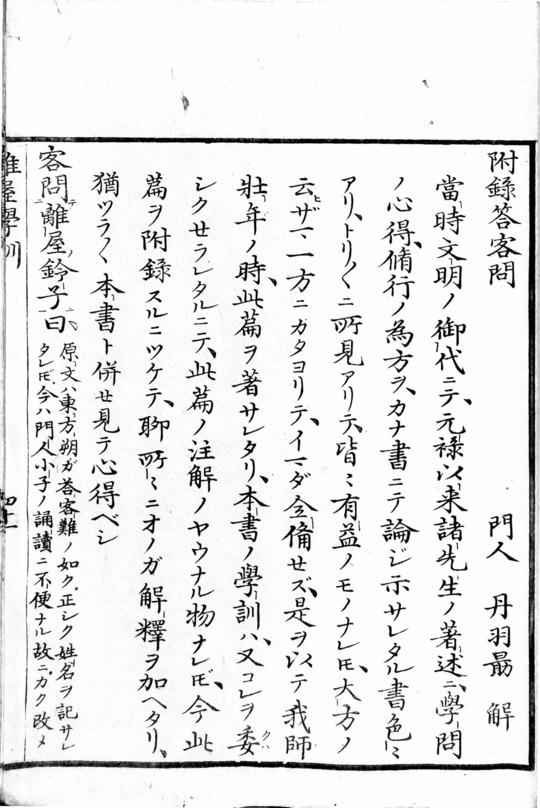 附録答客問
門人 丹羽勗 解
當時文明ノ御代ニテ、元禄以来諸先生ノ著述ニ、學問
ノ心得、脩行ノ為方ヲ、カナ書ニテ論ジ示サレタル書色〻
アリ、トリ〳〵ニ所見アリテ、皆〻有益ノモノナレ𪜈、大方ノ
云ザマ、一方ニガタヨリテ、イマダ全備セズ、是ヲ以テ我師
壯年ノ時、此篇ヲ著サレタリ、本書ノ學訓ハ、又コレヲ委
シクセラレタルニテ、此篇ノ注解ノヤウナル物ナレ𪜈、今此
篇ヲ附録スルニツケテ、聊所〻ニオノガ解釋ヲ加ヘタリ、
猶ツラ〳〵本書ト併せ見テ心得ベシ
客問離屋鈴子曰
原文ハ東方朔ガ荅客難ノ如ク、正シク姓名ヲ記サレ
タレ𪜈、今ハ門人小子ノ誦讀ニ不便ナル故ニ、カク改メ
離屋學訓
四十一